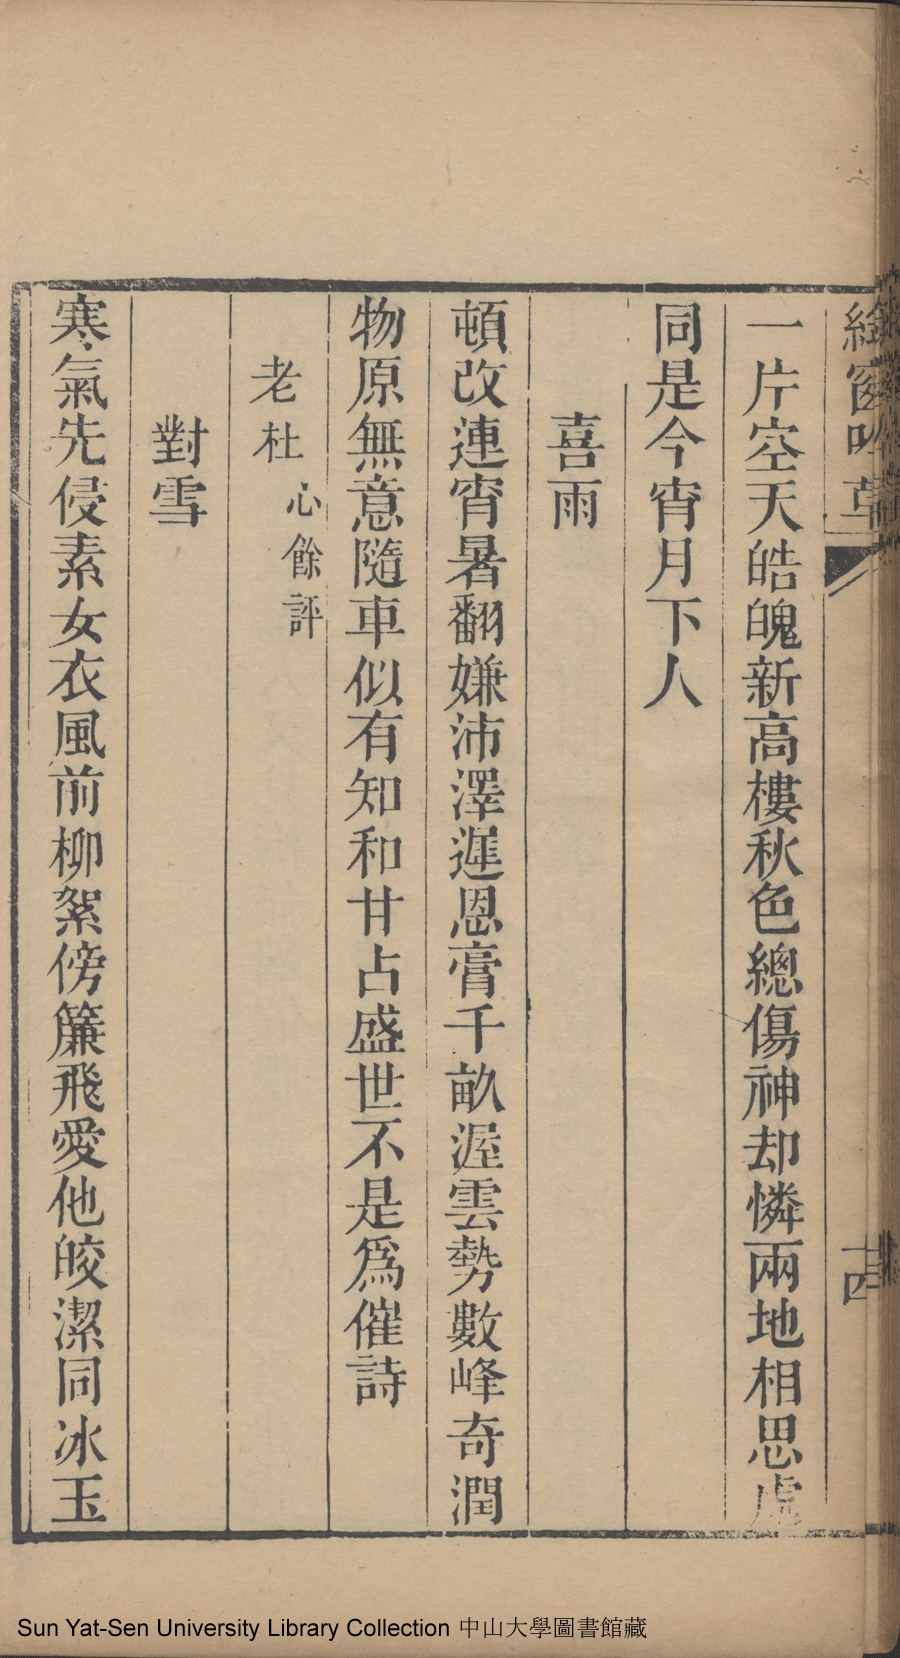 繪窗吟草
十四
一片空天皓魄新高樓秋色總傷神却憐兩地相思處
同是今宵月下人
喜雨
頓改連宵暑翻嫌沛澤遲恩膏千畝渥雲勢數峰奇潤
物原無意隨車似有知和甘占盛世不是爲催詩
老杜 心餘評
對雪
寒氣先侵素女衣風前柳絮傍簾飛愛他皎潔同冰玉
Sun Yat-Sen University Library Collection 中山大學圖書館藏